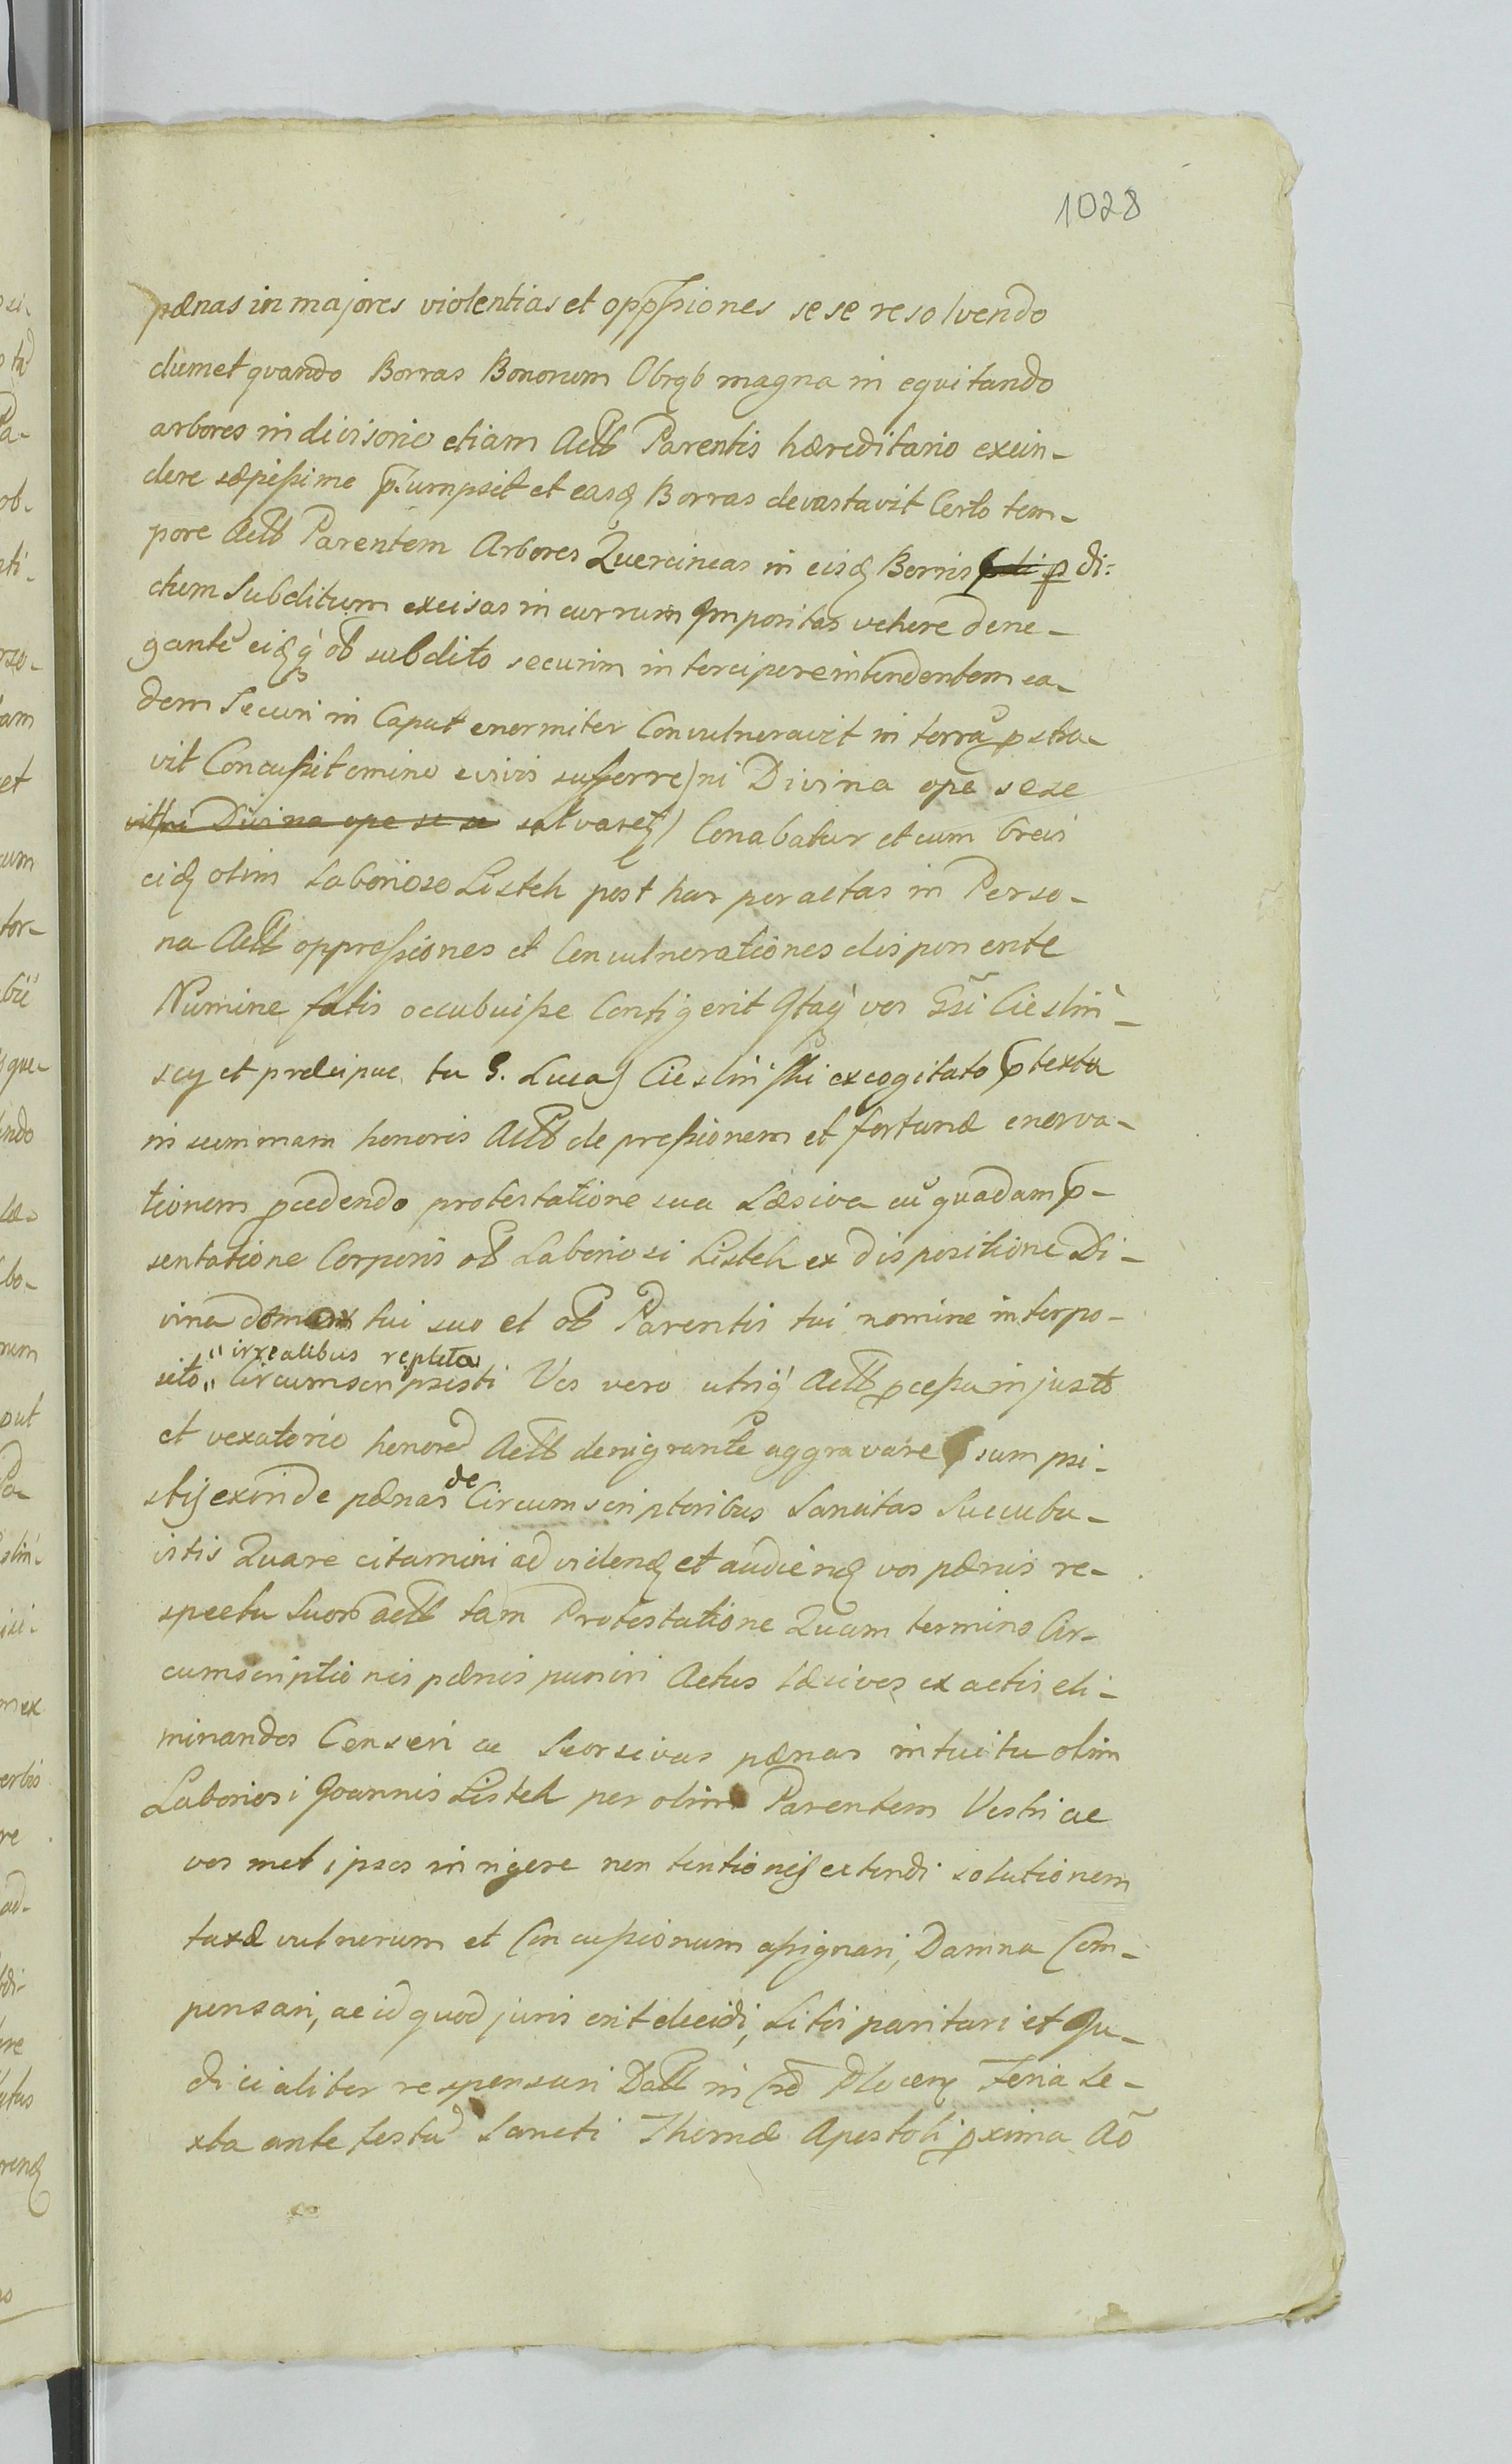 1028
pænas in majores violentias et opp̄ssiones sese resolvendo
dumet quando Borras Bonorum Obrąb magna in equitando
arbores in divisorio etiam Actt Parentis hæreditario exein-
dere sæpissime p̄sumpsit et easq Borras devastavit Certo tem-
pore Actt Parentem Arbores Quercineas in eisq Borris p di-
ctum Subditum excisas in currum Impositas vehere dene-
gante eiq q ob subdito securim intercipere intendentem ea-
dem Securi in Caput enormiter Convulneravit in terra pstra-
vit Concussit omino e vivis sufferre) ni Divina ope sese
vit(ni Divina ope se se salvaret) Conabatur et cum brevi
eiq olim Laborioso Listek post has peractas in Perso-
na Actt oppressiones et Convulnerationes disponente
Numine fatis occubuisse Contigerit Itaq vos Gsi Cieslin-
scy et præcipue tu G. Lucas Cieslinski excogitato p̄textu
in summam honoris Actt depressionem et fortunæ enerva-
tionem pcedendo protestatione sua Læsiva cu quadam p̄-
sentatione Corporis ob Laboriosi Listek ex dispositione Di-
vina tui suo et ob Parentis tui nomine interpo-
" irrealibus repleta
sito " Circumscripsisti Vos vero utiq Actt pcessu injusto
et vexatorio honore Actt denigrante aggravare sumpsi-
de
stis exinde pænas Circumscriptoribus Sancitas Succubu-
istis Quare citamini ad videnq et audienq vos pænis re-
spectu suor Actt tam Protestatione Quam termino Cir-
cumscriptionis pænis puniri Actus læsivos ex actis eli-
minandos Censeri ac Seorsivas pænas intuitu olim
Laboriosi Joannis Listek per olim Parentem Vestri ac
vosmet ipsos in rigere non tentionis extendi solutionem
taxæ vulnerum et Concussionum assignari, Damna Com-
pensari, ac id quod juris erit decidi, Litis paritari et Ju-
dicialiter responsuri Datt in Cro Plocen Feria Se-
xta ante festu Sancti Thomæ Apostoli pxima Ao